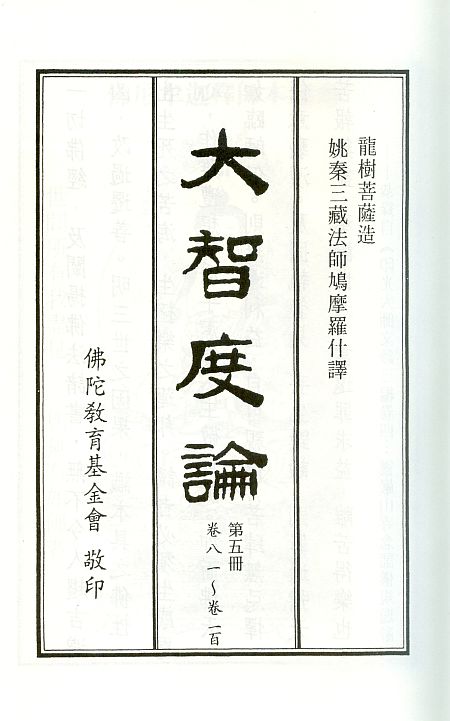 龍樹菩薩造
姚秦三藏法師鳩摩羅什譯
大智度論
第五冊
卷八一～卷一百
佛陀教育基金會 敬印